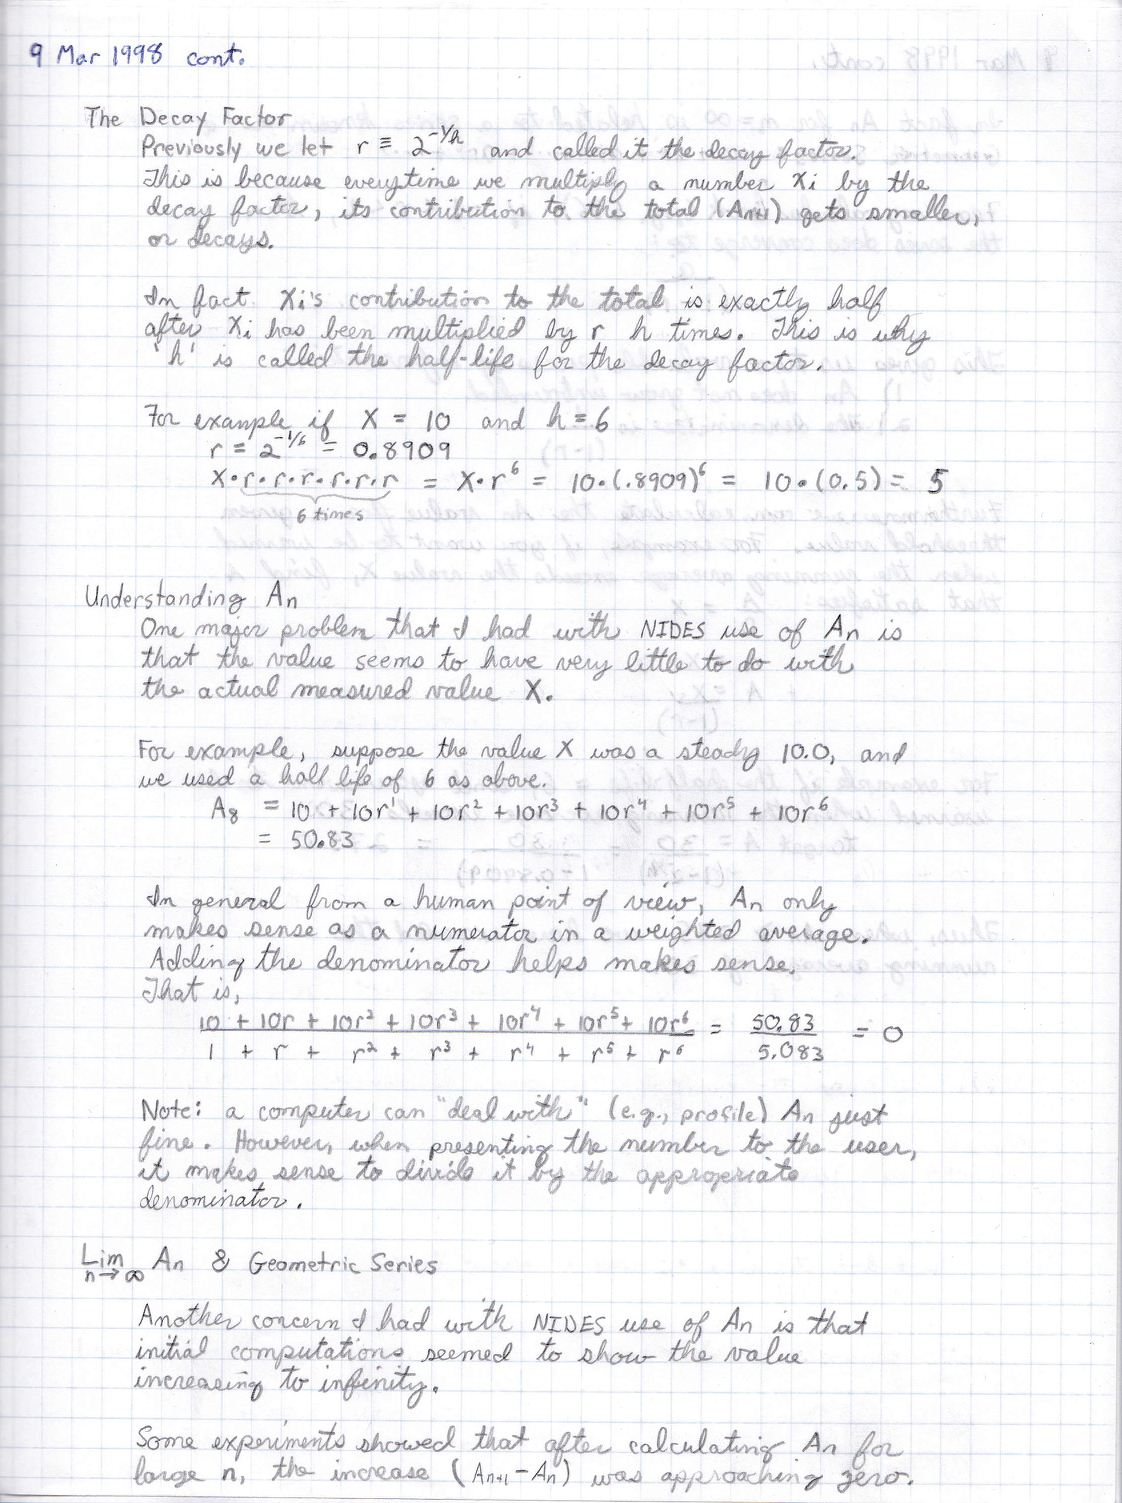 9 Mar 1998 cont.
The Decay Factor
Previously we let r ≡ 2^-1/h and called it the decay factor.
This is because everytime we multiply a number Xi by the
decay factor, its contribution to the total (An+1) gets smaller,
or decays.
In fact Xi's contribution to the total is exactly half
after Xi has been multiplied by r h times. This is why
'h' is called the half-life for the decay factor.
For example if X = 10 and h = 6
r = 2^-1/6 = 0.8909
X·r·r·r·r·r·r = X·r^6 = 10·(.8909)^6 = 10·(0.5) = 5
6 times
Understanding An
One major problem that I had with NIDES use of An is
that the value seems to have very little to do with
the actual measured value X.
For example, suppose the value X was a steady 10.0, and
we used a half life of 6 as above.
A8 = 10 + 10r^1 + 10r^2 + 10r^3 + 10r^4 + 10r^5 + 10r^6
= 50.83
In general from a human point of view, An only
makes sense as a numerator in a weighted average.
Adding the denominator helps makes sense.
That is,
10 + 10r + 10r^2 + 10r^3 + 10r^4 + 10r^5 + 10r^6 = 50.83 = 0
1 + r + r^2 + r^3 + r^4 + r^5 + r^6 5.083
Note: a computer can "deal with" (e.g., profile) An just
fine. However, when presenting the number to the user,
it makes sense to divide it by the appropriate
denominator.
Lim n→∞ An & Geometric Series
Another concern I had with NIDES use of An is that
initial computations seemed to show the value
increasing to infinity.
Some experiments showed that after calculating An for
large n, the increase (An+1 - An) was approaching zero.